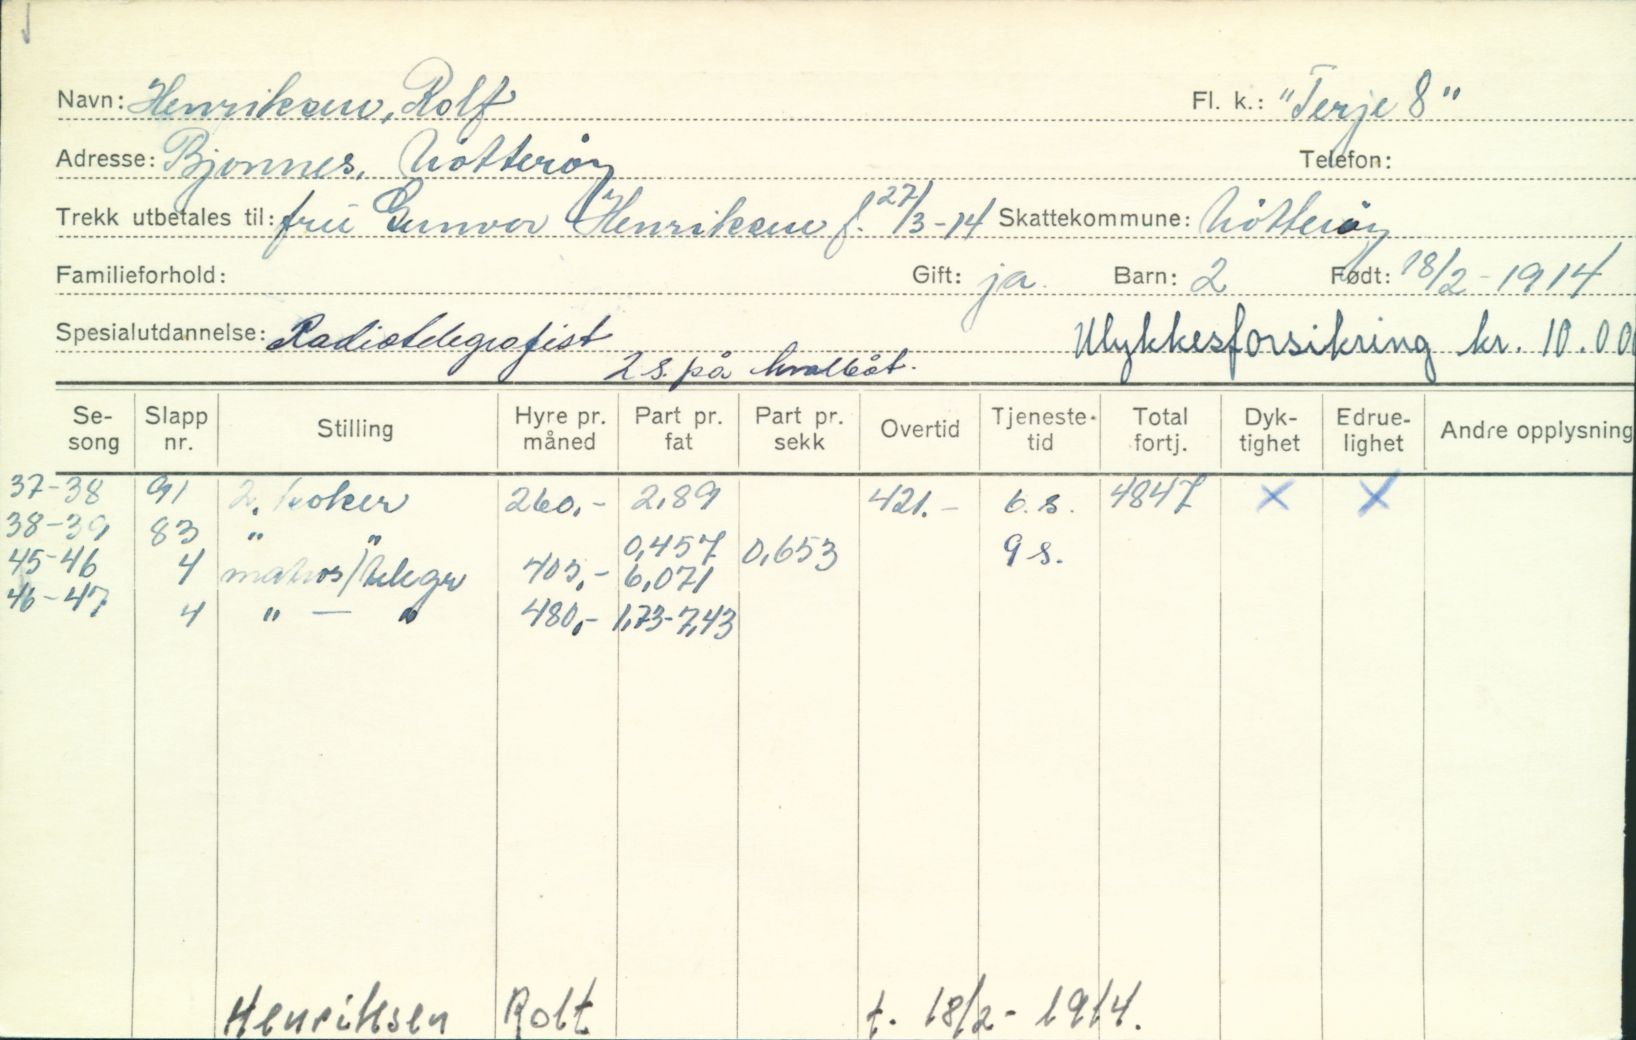 Navn: Henriksen, Rolf Fl. k.: "Terje 8"
Adresse: Bjønnes, Nötteröy Telefon:
Trekk utbetales til: frü Gunvor Henriksen f. 27/3-14 Skattekommune: Nötteröy
Familieforhold: Gift: ja. Barn: 2 Født: 18/2-1914
Spesialutdannelse: Radiotelegrafist Ulykkesforsikring kr. 10.00
2 s. på hvalbåt.
Se-song Slapp nr. Stilling Hyre pr. måned Part pr. fat Part pr. sekk Overtid Tjeneste-tid Total fortj. Dyk-tighet Edrue-lighet Andre opplysning
37-38 91 2. koker 260,- 2,89 421.- 6. s. 4847 X X
38-39 83 " " 0,457 0,653 9 s.
45-46 4 matros/telegr 405,- 6,071
46-47 4 " — " 480,- 1,73-7,43
Henriksen Rolf f. 18/2-1914.